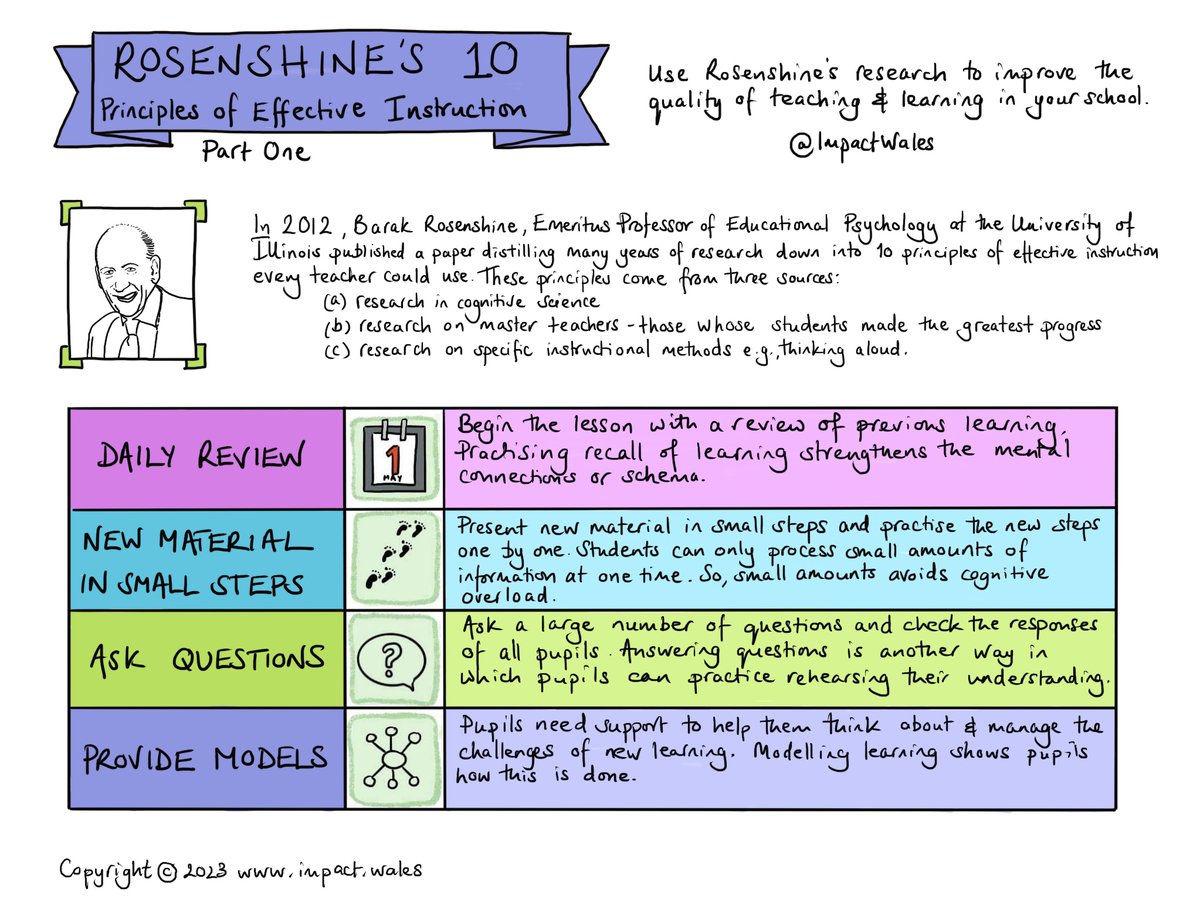 ROSENSHINE'S 10
Principles of Effective Instruction
Part One
Use Rosenshine's research to improve the
quality of teaching & learning in your school.
@ImpactWales
In 2012, Barak Rosenshine, Emeritus Professor of Educational Psychology at the University of
Illinois published a paper distilling many years of research down into 10 principles of effective instruction
every teacher could use. These principles come from three sources:
(a) research in cognitive science
(b) research on master teachers - those whose students made the greatest progress
(c) research on specific instructional methods e.g., thinking aloud.
DAILY REVIEW
1
MAY
Begin the lesson with a review of previous learning.
Practising recall of learning strengthens the mental
connections or schema.
NEW MATERIAL
IN SMALL STEPS
Present new material in small steps and practise the new steps
one by one. Students can only process small amounts of
information at one time. So, small amounts avoids cognitive
overload.
ASK QUESTIONS
?
Ask a large number of questions and check the responses
of all pupils. Answering questions is another way in
which pupils can practice rehearsing their understanding.
PROVIDE MODELS
Pupils need support to help them think about & manage the
challenges of new learning. Modelling learning shows pupils
how this is done.
Copyright © 2023 www.impact.wales